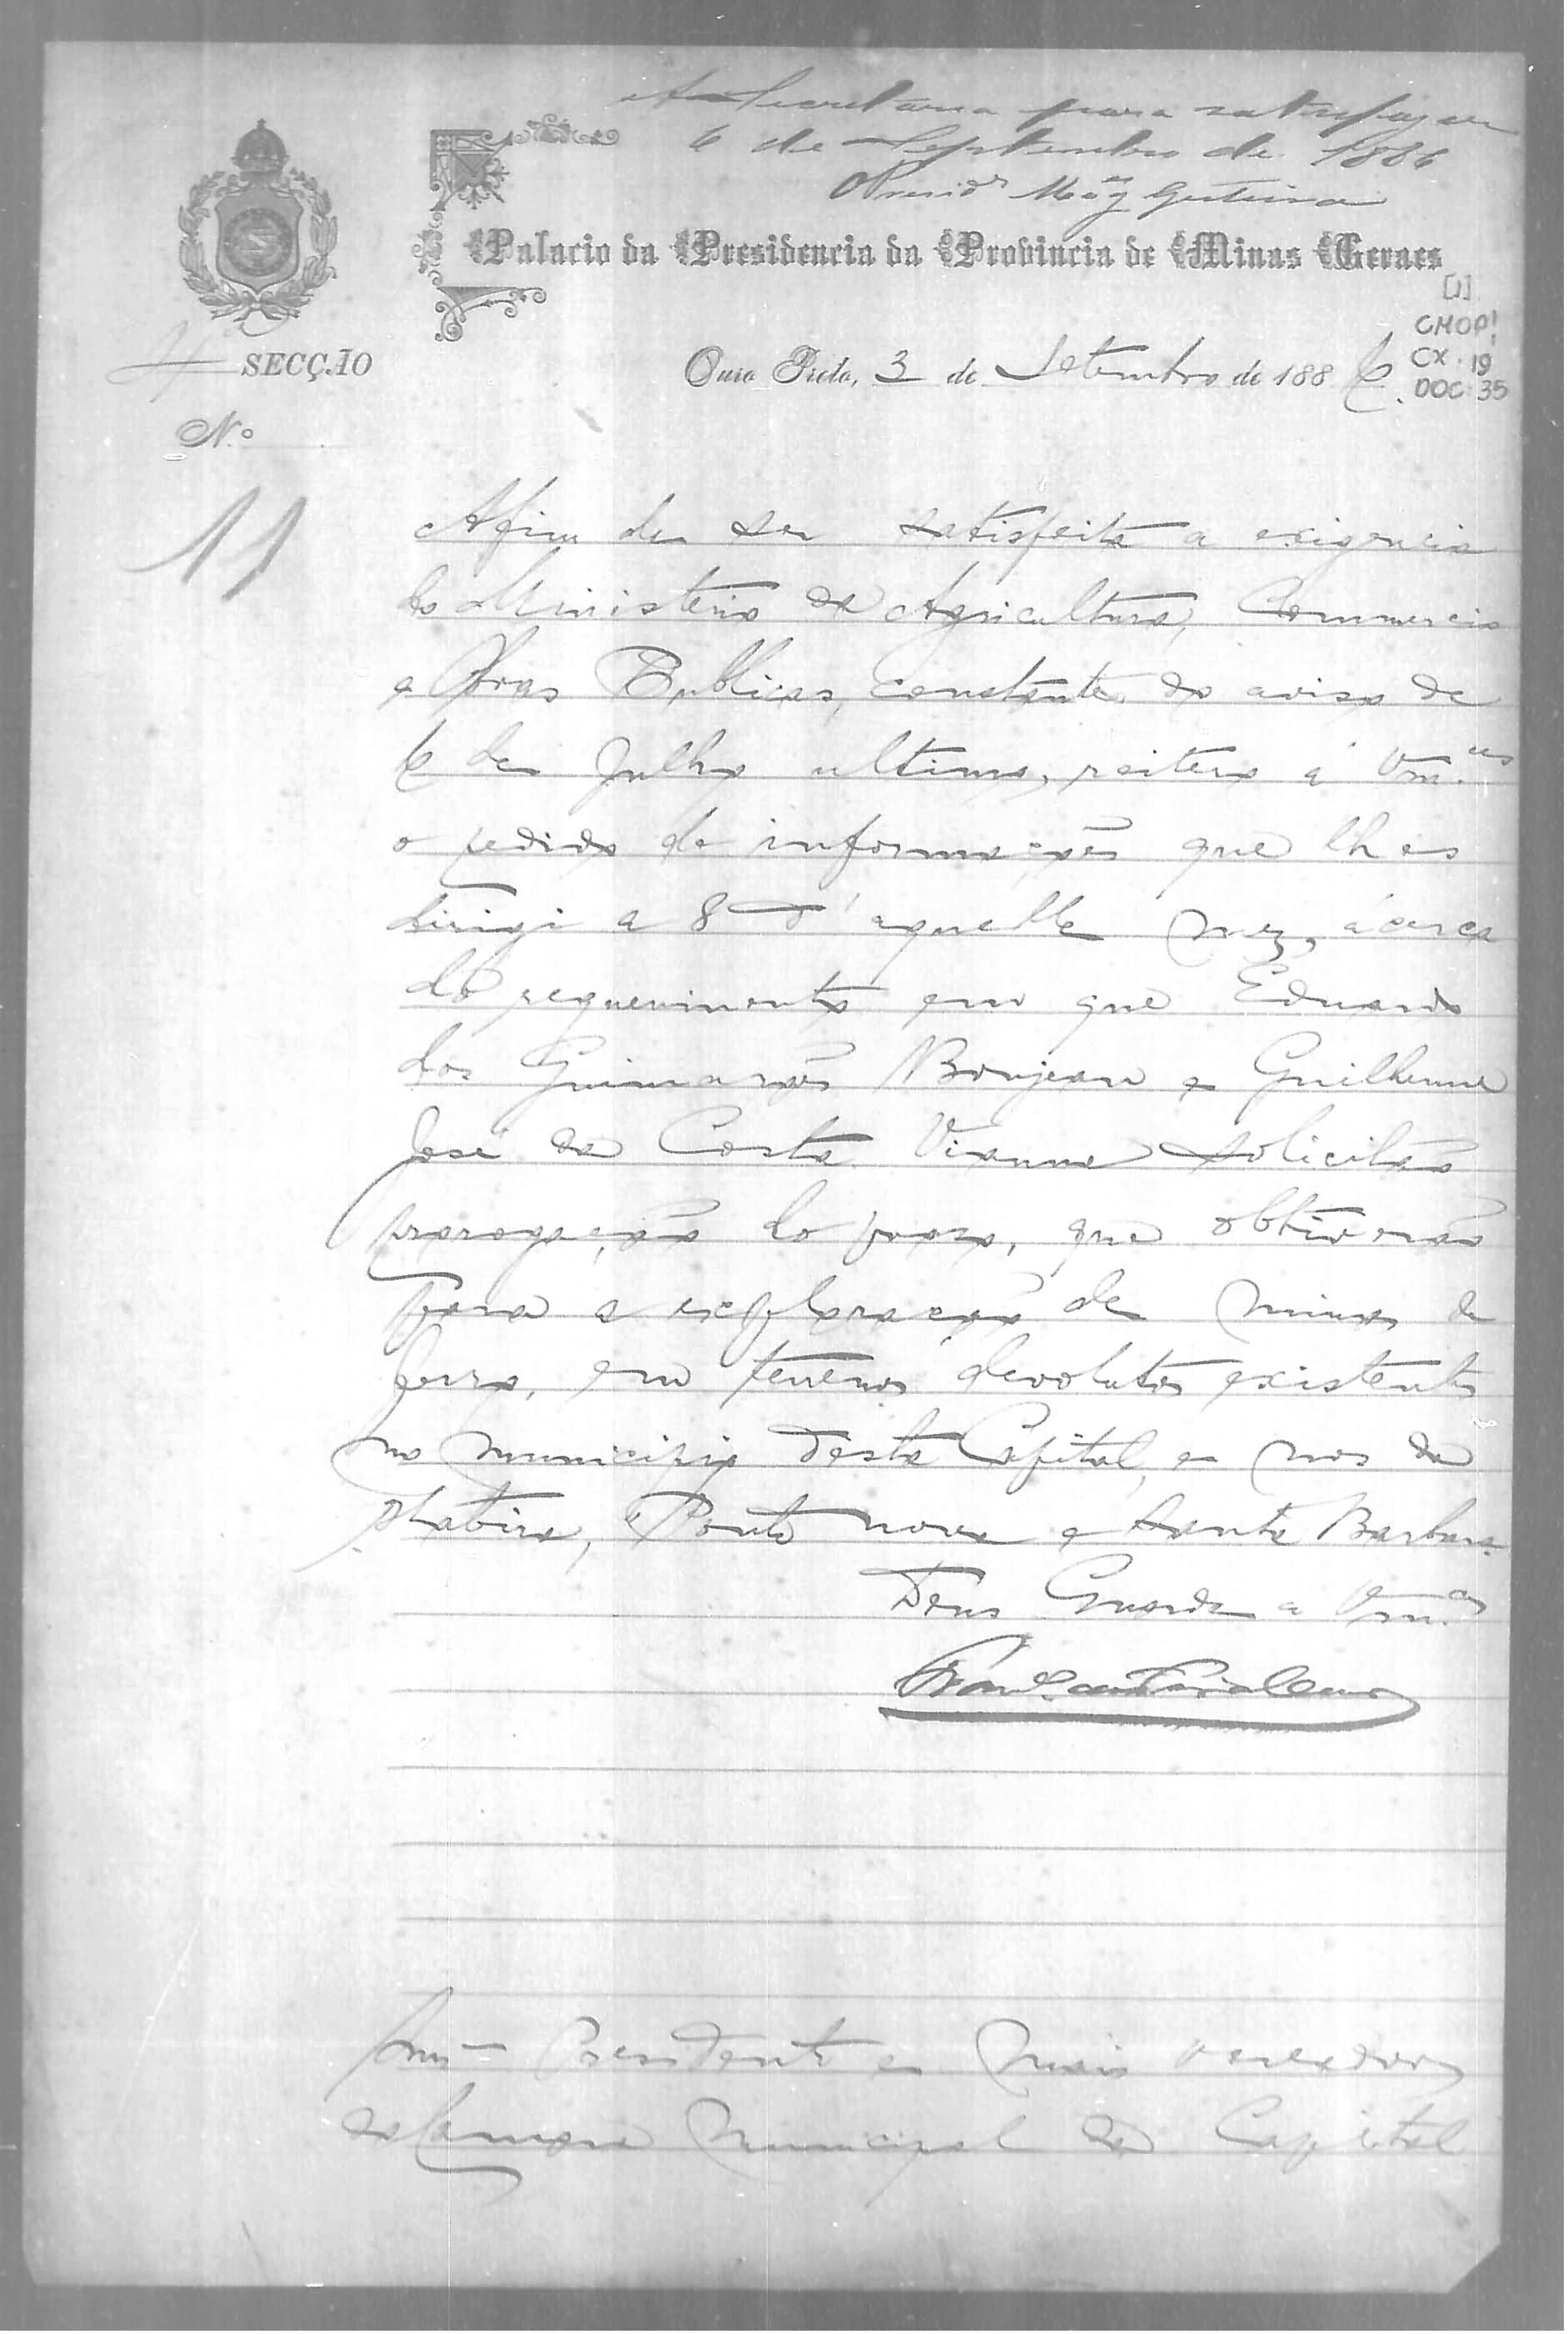 A Secretaria para satisfazer
6 de Septembro de 1886
Palacio da Presidencia da Provincia de Minas Geraes
[1]
CMOP!
CX. 19
DOC. 35
4ª SECÇÃO
Ouro Preto, 3 de Setembro de 1886.
N.º
11
Afim de ser satisfeita a exigencia
do Ministerio da Agricultura, Commercio
e Obras Publicas, constante do aviso de
6 de Julho ultimo, reitero á Vm.ces
o pedido de informações que lhes
dirigi a 8 d'aquelle mez, ácerca
do requerimento em que Eduardo
dos Guimarães Bonjean e Guilherme
José da Costa Vianna solicitão
prorogação do praso, que obtiverão
para a exploração de minas de
ferro, em terrenos devolutos existentes
no municipio desta Capital, e nos de
Itabira, Ponte nova e Santa Barbara.
Deus Guarde a Vm.ces
Snr.es Presidente e mais vereadores
da Camara Municipal da Capital